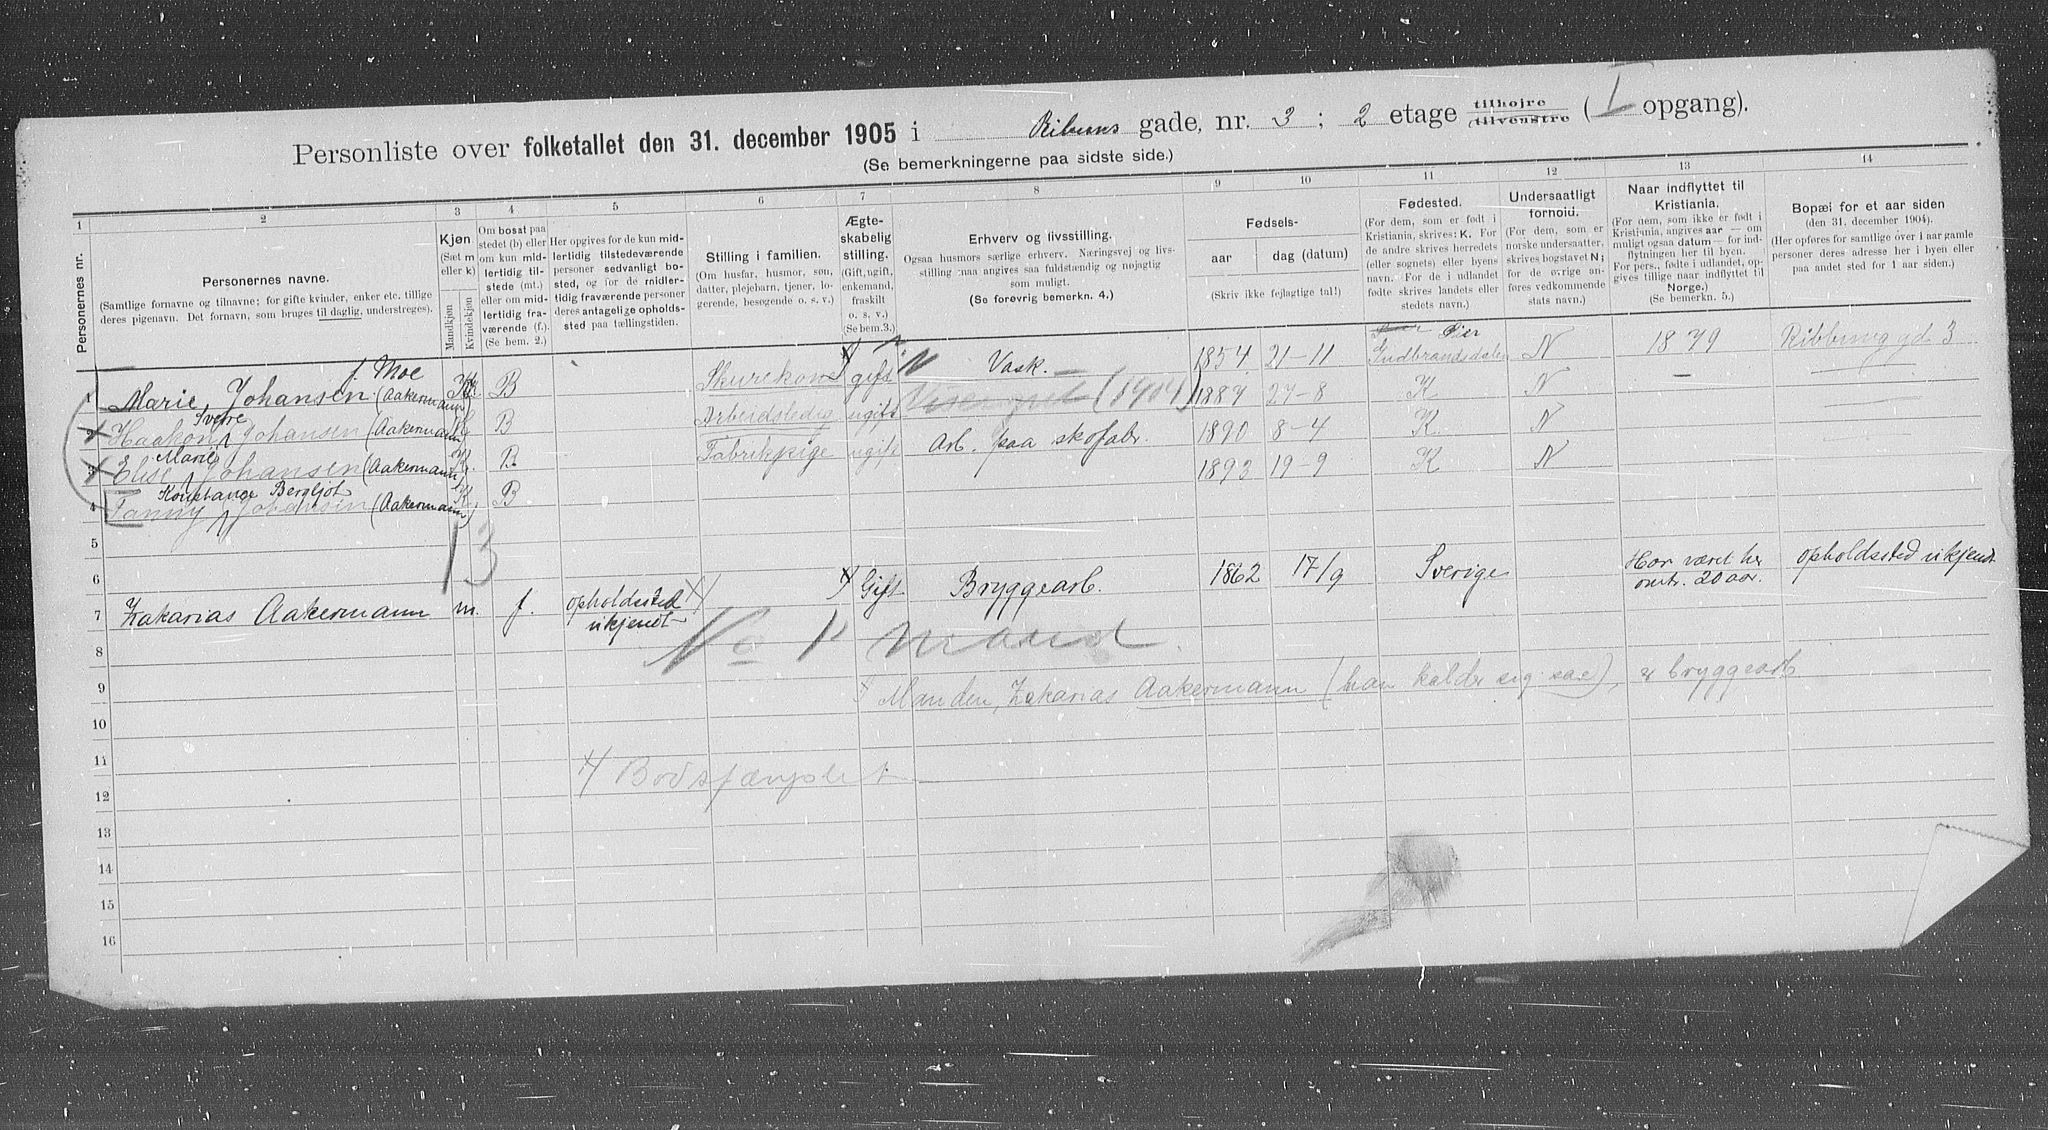 Personliste over folketallet den 31. december 1905 i Ribuns gade, nr. 3 ; 2 etage tilhøjre / tilvenstre ( I opgang).
(Se bemerkningerne paa sidste side.)
1 2 3 4 5 6 7 8 9 10 11 12 13 14
Personernes nr.
Personernes navne.
(Samtlige fornavne og tilnavne; for gifte kvinder, enker etc. tillige
deres pigenavn. Det fornavn, som bruges til daglig, understreges).
Kjøn
(Sæt m
eller k)
Mandkjøn
Kvindekjøn
Om bosat paa
stedet (b) eller
om kun mid-
lertidig til-
stede (mt.)
eller om mid-
lertidig fra-
værende (f.).
(Se bem. 2.)
Her opgives for de kun mid-
lertidig tilstedeværende
personer sedvanlig bo-
sted, og for de midler-
tidig fraværende personer
deres antagelige opholds-
sted paa tællingstiden.
Stilling i familien.
(Om husfar, husmor, søn,
datter, plejebarn, tjener, lo-
gerende, besøgende o. s. v.)
Ægte-
skabelig
stilling.
(Gift, ugift,
enkemand,
fraskilt
o. s. v.)
(Se bem. 3.)
Erhverv og livsstilling.
Ogsaa husmors særlige erhverv. Næringsvej og livs-
stilling maa angives saa fuldstændig og nøjagtig
som muligt.
(Se forøvrig bemerkn. 4.)
Fødsels-
aar dag (datum)
(Skriv ikke fejlagtige tal!)
Fødested.
(For dem, som er født i
Kristiania, skrives: K. For
de andre skrives herredets
(eller sognets) eller byens
navn. For de i udlandet
fødte skrives landets eller
stedets navn.)
Undersaatligt
forhold.
(For dem, som er
norske undersaatter,
skrives bogstavet N;
for de øvrige an-
føres vedkommende
stats navn.)
Naar indflyttet til
Kristiania.
(For dem, som ikke er født i
Kristiania, angives aar — om
muligt ogsaa datum — for ind-
flytningen her til byen.
For pers., fødte i udlandet, op-
gives tillige naar indflyttet til
Norge.)
(Se bemerkn. 5.)
Bopæl for et aar siden
(den 31. december 1904).
(Her opføres for samtlige over 1 aar gamle
personer deres adresse her i byen eller
paa andet sted for 1 aar siden.)
f. Moe
1 Marie Johansen (Aakermann) K. B Skurekone gift Vask. 1854 21-11 Gudbrandsdalen N 1879 Ribbunsgd 3
Sverre
2 Haakon Johansen (Aakermann) B Arbeidsledig ugift Visergut (1904) 1887 27-8 K N —
Marie
3 Elise Johansen (Aakermann) K. B Fabrikpige ugift Arb. paa skofabr. 1890 8-4 K N
Konstance Bergljot
4 Fanny Johansen (Aakermann) K. B 1893 19-9 K N
13
5
6
7 Zakarias Aakermann m. f. opholdssted ukjendt Gift Bryggearb. 1862 17/9 Sverige Har været her omtr. 20 aar. opholdssted ukjendt
No 1^s mand
8
9 Manden, Zakarias Aakermann (han kalder sig saa), er bryggearb
10
11 Bodsfængslet
12
13
14
15
16